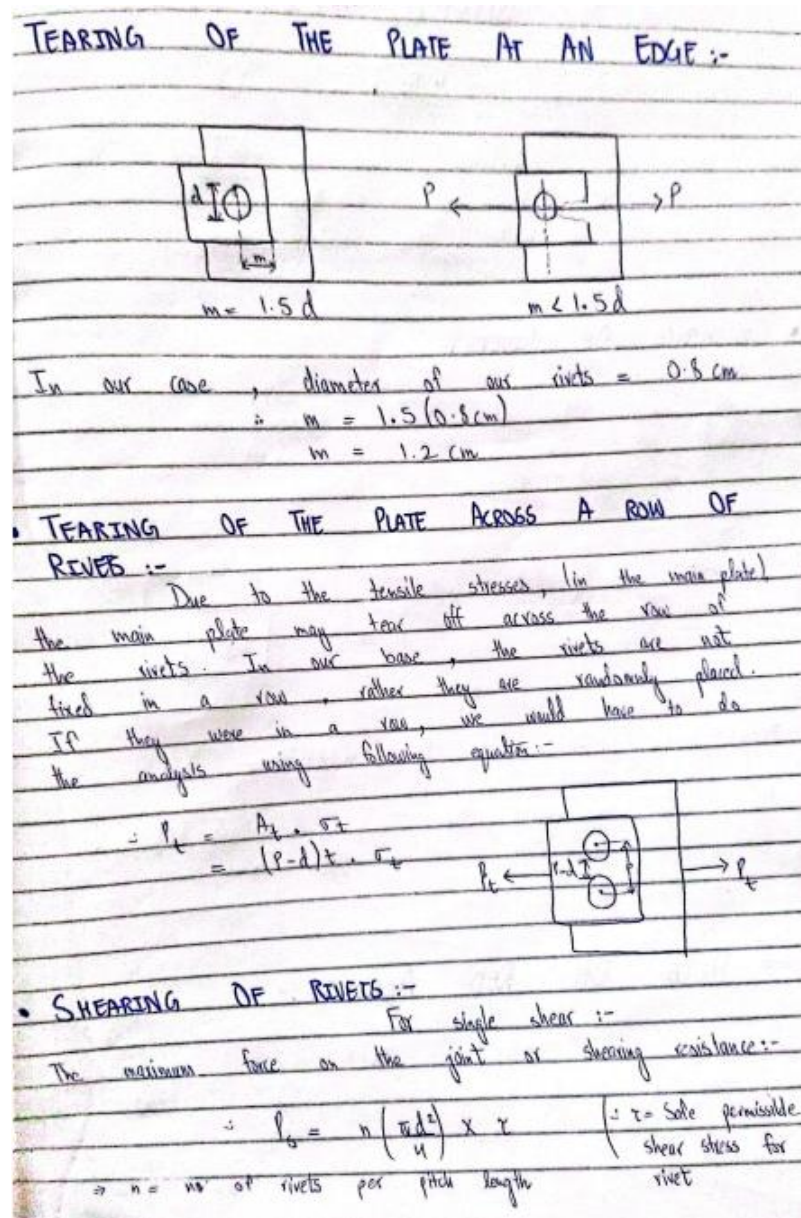 TEARING OF THE PLATE AT AN EDGE :-
d
m
P P
m = 1.5 d m < 1.5d
In our case , diameter of our rivets = 0.8 cm
∴ m = 1.5 (0.8 cm)
m = 1.2 cm
• TEARING OF THE PLATE ACROSS A ROW OF
RIVETS :-
Due to the tensile stresses, (in the main plate)
the main plate may tear off across the row of
the rivets. In our base , the rivets are not
fixed in a row , rather they are randomly placed.
If they were in a row, we would have to do
the analysis using following equation :-
∴ Pt = At . σt
= (P-d)t . σt
Pt P-d P Pt
• SHEARING OF RIVETS :-
For single shear :-
The maximum force on the joint or shearing resistance:-
∴ Ps = n (πd²/4) × τ (∴ τ = Safe permissible
shear stress for
rivet
⇒ n = no of rivets per pitch length